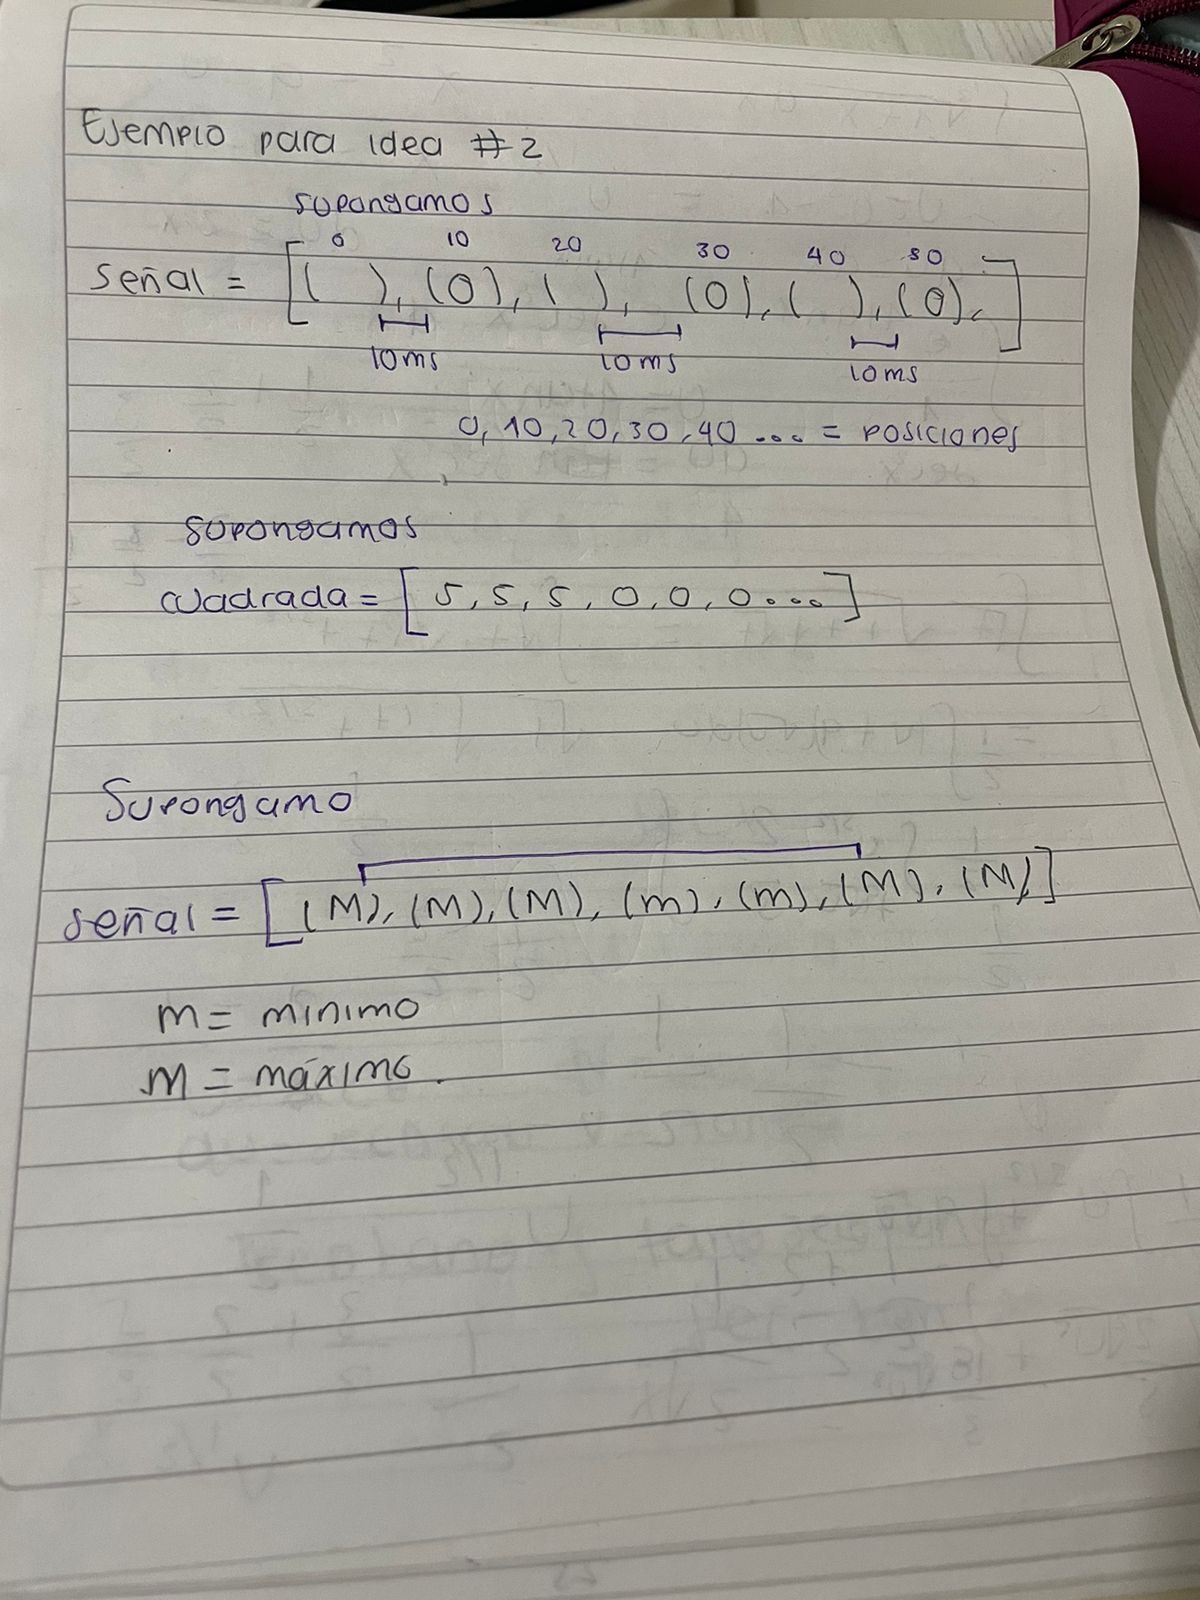 Ejemplo para idea #2
supongamos
0 10 20 30 40 50
señal = [( ), (0), ( ), (0), ( ), (0), ]
10ms 10ms 10ms
0, 10, 20, 30, 40 ... = posiciones
supongamos
cuadrada = [5, 5, 5, 0, 0, 0...]
Supongamo
señal = [(M), (M), (M), (m), (m), (M), (M)]
m = minimo
M = máximo.